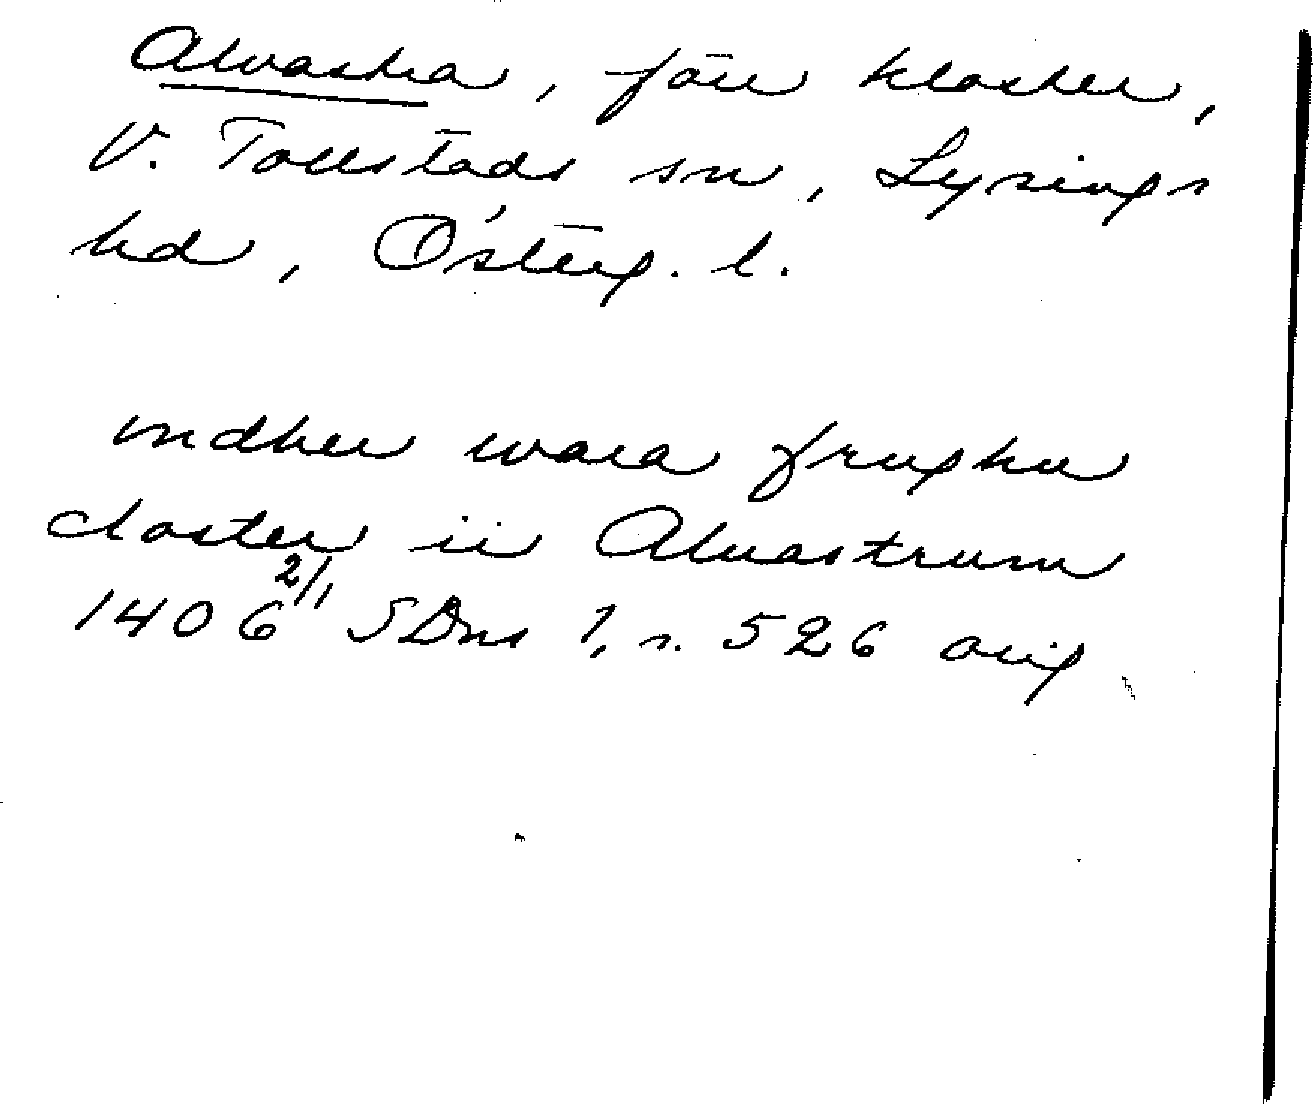 Alvastra, förr kloster,
V. Tollstads sn, Lysings
hd, Österg. l.
vndher wara frughu
closter ii Aluastrum
1406 2/1 SDns 1, s. 526 orig